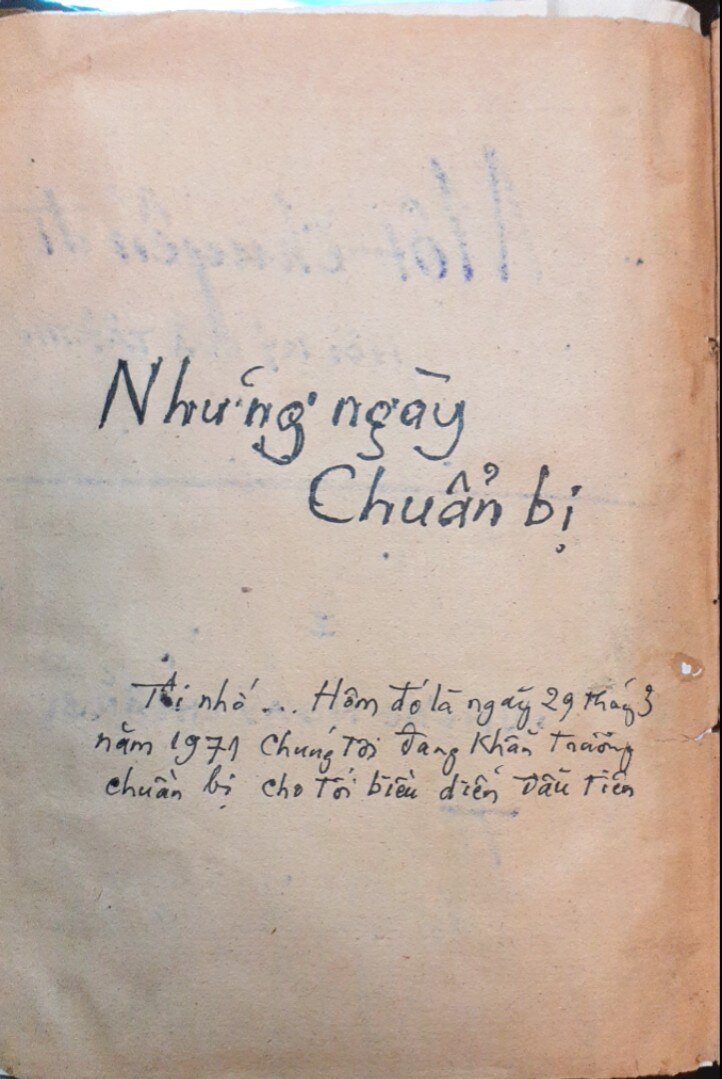 Những ngày
Chuẩn bị
Tôi nhớ ... Hôm đó là ngày 29 tháng 3
năm 1971 chúng tôi đang khẩn trương
chuẩn bị cho tối biểu diễn đầu tiên